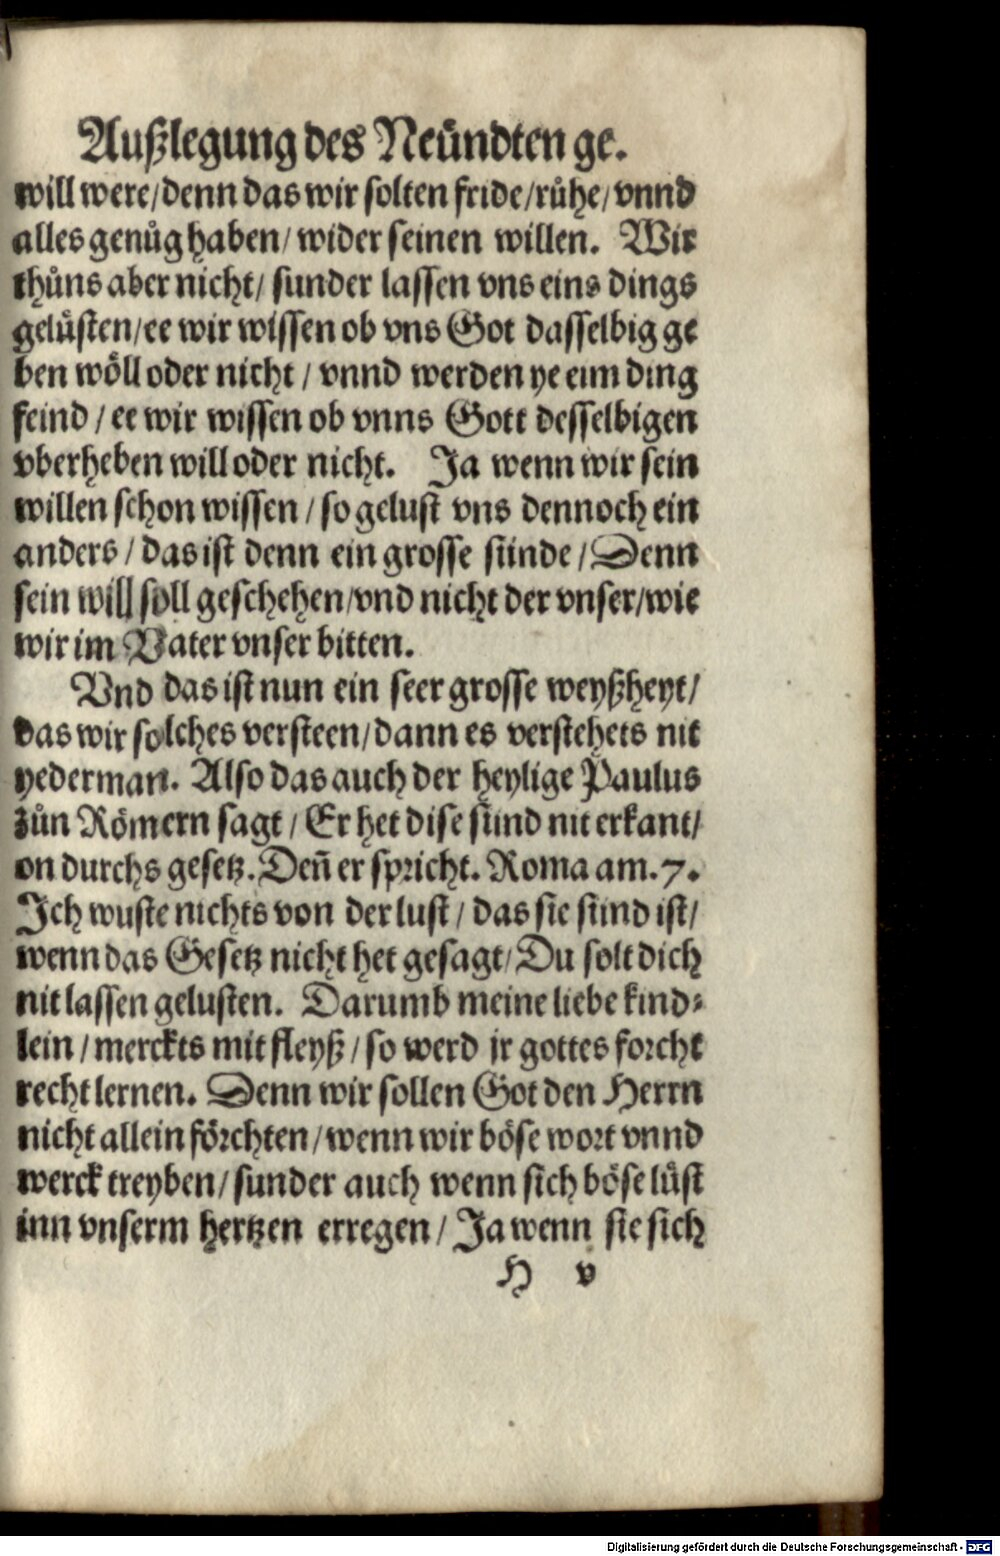 Außlegung des Neündten ge.
will were/denn das wir solten fride/růhe/vnnd
alles genůg haben/wider seinen willen. Wir
thůns aber nicht/sunder lassen vns eins dings
gelüsten/ee wir wissen ob vns Got dasselbig ge
ben wöll oder nicht/vnnd werden ye eim ding
feind/ee wir wissen ob vnns Gott desselbigen
vberheben will oder nicht. Ja wenn wir sein
willen schon wissen/so gelust vns dennoch ein
anders/das ist denn ein grosse sünde/Denn
sein will soll geschehen/vnd nicht der vnser/wie
wir im Vater vnser bitten.
Vnd das ist nun ein seer grosse weyßheyt/
das wir solches versteen/dann es verstehets nit
yederman. Also das auch der heylige Paulus
zůn Römern sagt/Er het dise sünd nit erkant/
on durchs gesetz. Deñ er spricht. Roma am. 7.
Ich wuste nichts von der lust/das sie sünd ist/
wenn das Gesetz nicht het gesagt/Du solt dich
nit lassen gelusten. Darumb meine liebe kind⸗
lein/merckts mit fleyß/so werd jr gottes forcht
recht lernen. Denn wir sollen Got den Herrn
nicht allein förchten/wenn wir böse wort vnnd
werck treyben/sunder auch wenn sich böse lüst
inn vnserm hertzen erregen/Ja wenn sie sich
H v
Digitalisierung gefördert durch die Deutsche Forschungsgemeinschaft - DFG